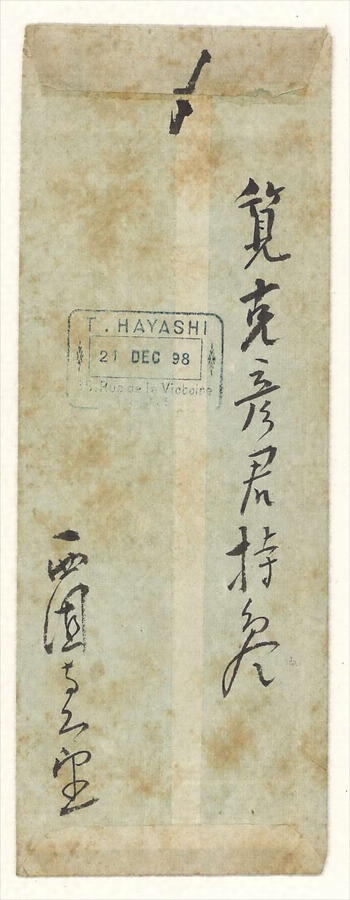 筧克彦君持参
T. HAYASHI
21 DEC 98
Rue de la Victoire
西園寺公望